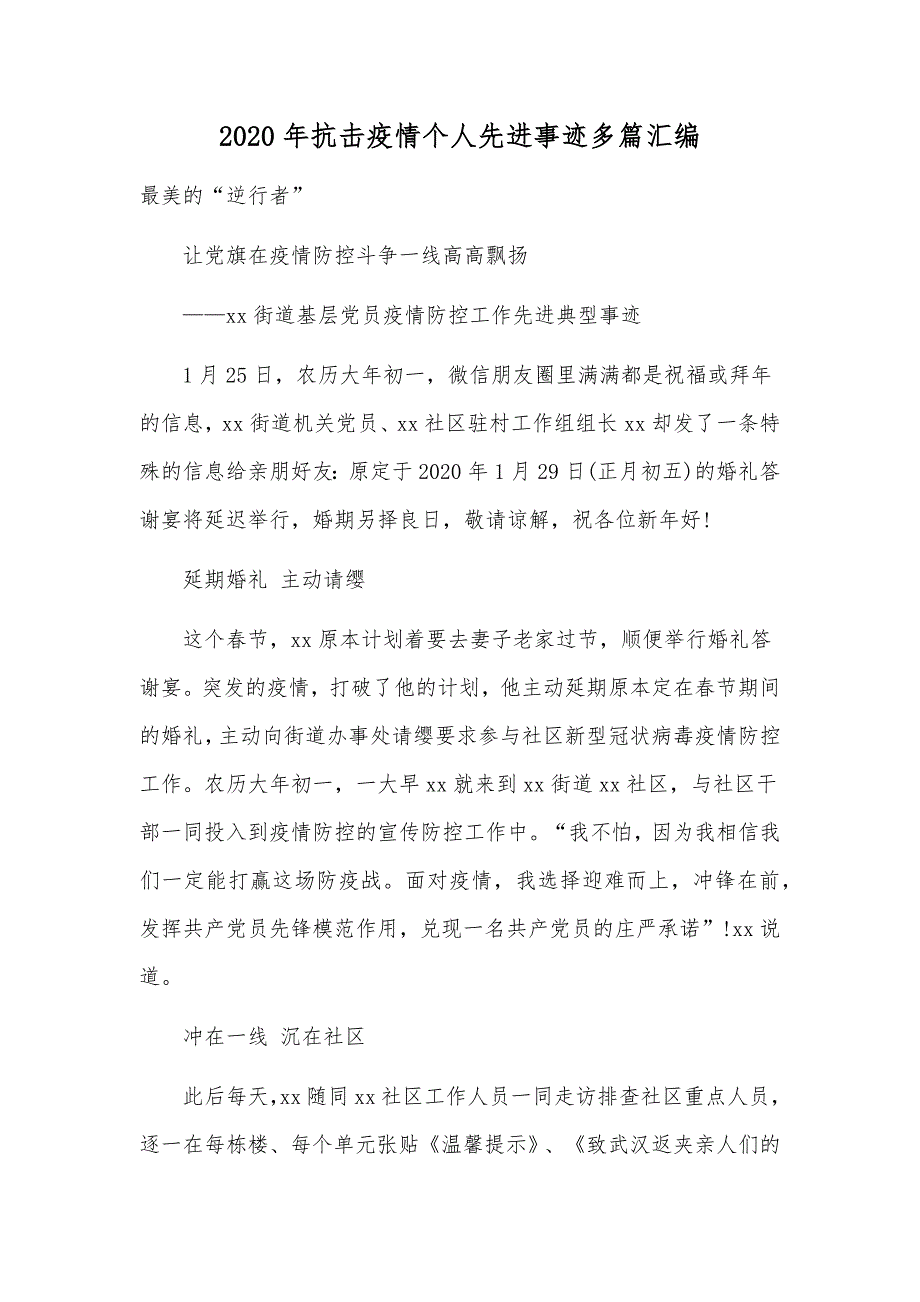 2020 年抗击疫情个人先进事迹多篇汇编
最美的“逆行者”
让党旗在疫情防控斗争一线高高飘扬
——xx 街道基层党员疫情防控工作先进典型事迹
1 月 25 日，农历大年初一，微信朋友圈里满满都是祝福或拜年
的信息，xx 街道机关党员、xx 社区驻村工作组组长 xx 却发了一条特
殊的信息给亲朋好友：原定于 2020 年 1 月 29 日(正月初五)的婚礼答
谢宴将延迟举行，婚期另择良日，敬请谅解，祝各位新年好!
延期婚礼 主动请缨
这个春节，xx 原本计划着要去妻子老家过节，顺便举行婚礼答
谢宴。突发的疫情，打破了他的计划，他主动延期原本定在春节期间
的婚礼，主动向街道办事处请缨要求参与社区新型冠状病毒疫情防控
工作。农历大年初一，一大早 xx 就来到 xx 街道 xx 社区，与社区干
部一同投入到疫情防控的宣传防控工作中。“我不怕，因为我相信我
们一定能打赢这场防疫战。面对疫情，我选择迎难而上，冲锋在前，
发挥共产党员先锋模范作用，兑现一名共产党员的庄严承诺”!xx 说
道。
冲在一线 沉在社区
此后每天，xx 随同 xx 社区工作人员一同走访排查社区重点人员，
逐一在每栋楼、每个单元张贴《温馨提示》、《致武汉返夹亲人们的